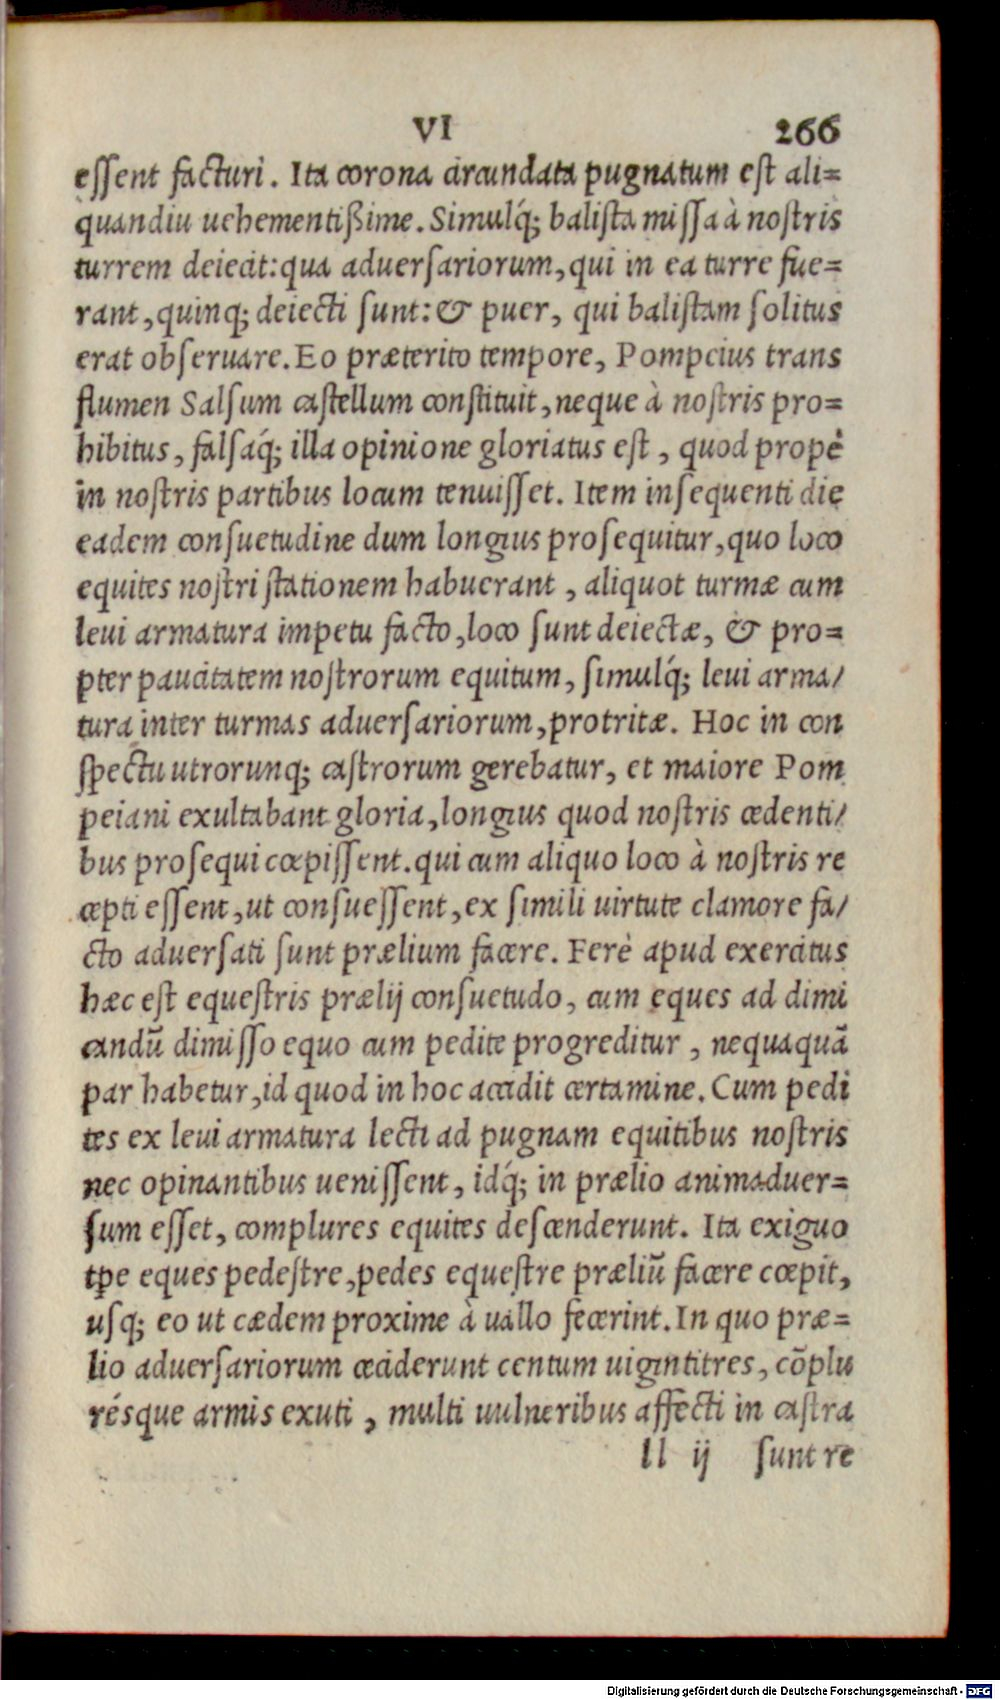 VI 266
essent facturi. Ita corona circundata pugnatum est ali=
quandiu uehementißime. Simulq́; balista missa à nostris
turrem deiecit: qua aduersariorum, qui in ea turre fue=
rant, quinq; deiecti sunt: & puer, qui balistam solitus
erat obseruare. Eo præterito tempore, Pompeius trans
flumen Salsum castellum constituit, neque à nostris pro=
hibitus, falsaq́; illa opinione gloriatus est, quod propè
in nostris partibus locum tenuisset. Item insequenti die
eadem consuetudine dum longius prosequitur, quo loco
equites nostri stationem habuerant, aliquot turmæ cum
leui armatura impetu facto, loco sunt deiectæ, & pro=
pter paucitatem nostrorum equitum, simulq́; leui arma/
tura inter turmas aduersariorum, protritæ. Hoc in con
spectu utrorunq; castrorum gerebatur, et maiore Pom
peiani exultabant gloria, longius quod nostris cedenti/
bus prosequi cœpissent. qui cum aliquo loco à nostris re
cepti essent, ut consuessent, ex simili uirtute clamore fa/
cto aduersati sunt prælium facere. Ferè apud exercitus
hæc est equestris prælij consuetudo, cum eques ad dimi
candū dimisso equo cum pedite progreditur, nequaquā
par habetur, id quod in hoc accidit certamine. Cum pedi
tes ex leui armatura lecti ad pugnam equitibus nostris
nec opinantibus uenissent, idq́; in prælio animaduer=
sum esset, complures equites descenderunt. Ita exiguo
tꝑe eques pedestre, pedes equestre præliū facere cœpit,
usq; eo ut cædem proxime à uallo fecerint. In quo præ=
lio aduersariorum ceciderunt centum uigintitres, cōplu
résque armis exuti, multi uulneribus affecti in castra
ll ij sunt re
Digitalisierung gefördert durch die Deutsche Forschungsgemeinschaft - DFG